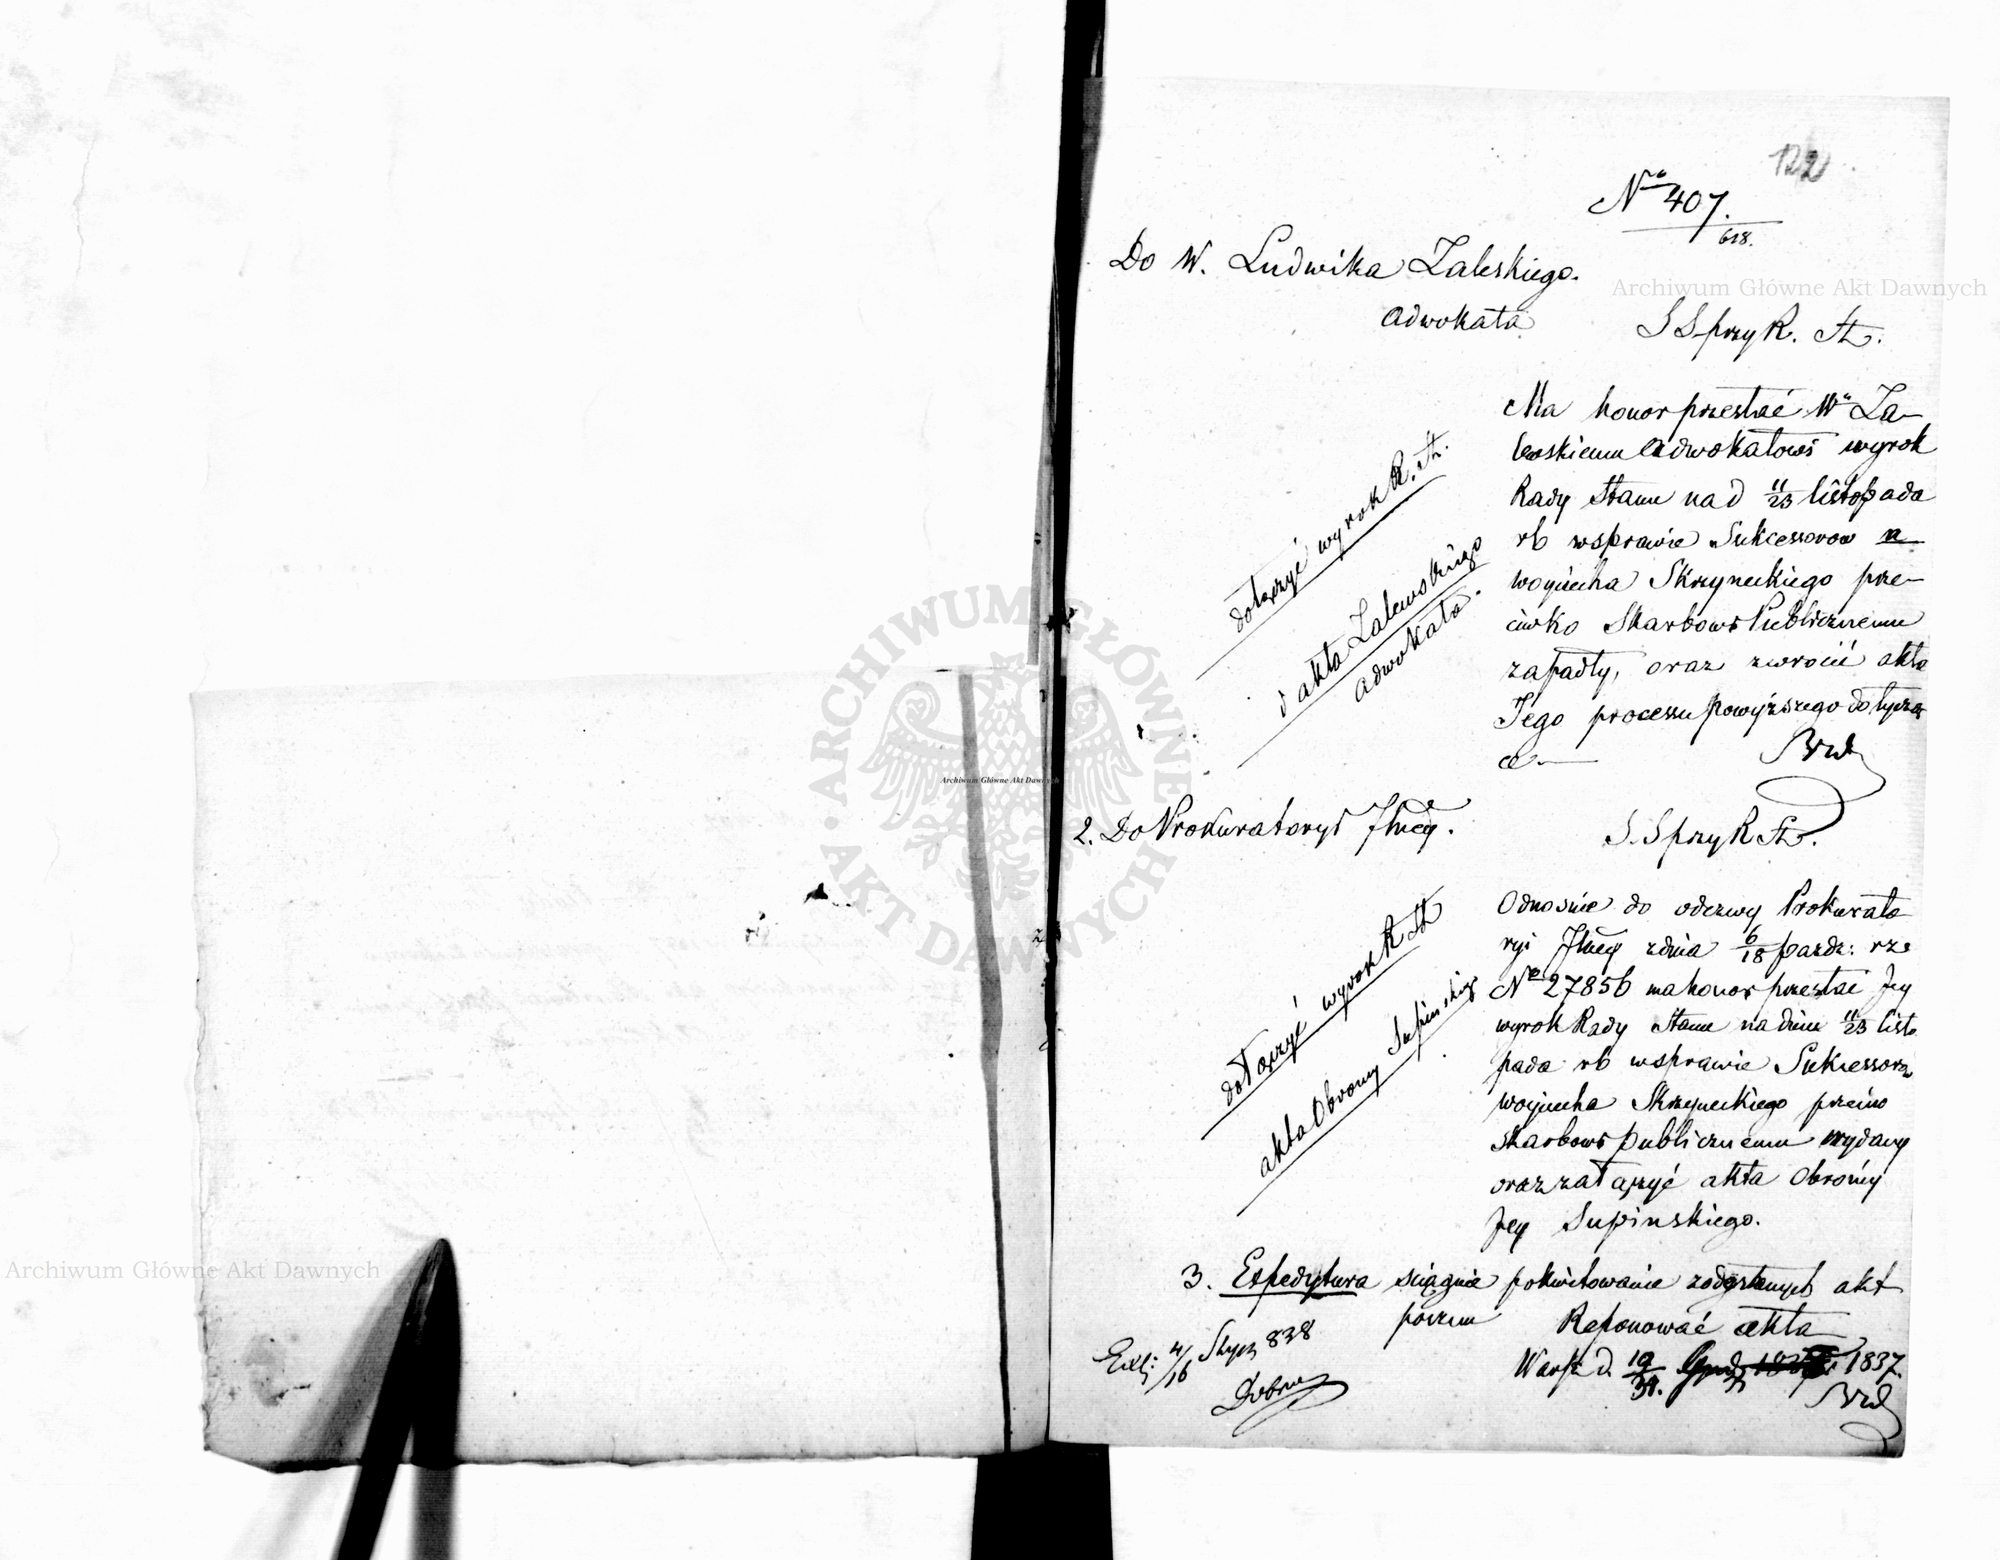 122
Nro 407.
618.
Do W. Ludwika Zaleskiego.
Adwokata
S S przy R. St.
Ma honor przesłać Wu Za-
lewskiemu Adwokatowi wyrok
Rady Stanu na d 11/23 listopada
rb w sprawie Sukcessorow
Wojciecha Skrzyneckiego prze-
ciwko Skarbowi Publicznemu
zapadły, oraz zwrocić akta
Jego processu powyższego dotycząc
ce.—
dołączyć wyrok R. St.
i akta Zalewskiego
Adwokata.
2. Do Prokuratoryi
S. S przy R St.
Odnośnie do odezwy Prokurato
ryi z dnia 6/18 paźdz: rze
Nro 27856 ma honor przesłać Jey
wyrok Rady Stanu na dniu 11/23 listo
pada rb w sprawie Sukcessorow
Wojciecha Skrzyneckiego przeciwo
Skarbowi publicznemu wydany
oraz załączyć akta Obrońcy
Jey Supinskiego.
dołączyć wyrok R St
akta Obrony Supinskiego
3. Expedytura sciągnie pokwitowanie z odesłanych akt
poczem Reponować akta
Exp: 4/16 Stycz 838
Warsz d. 19/31. 1837.
Archiwum Główne Akt Dawnych
Archiwum Główne Akt Dawnych
Archiwum Główne Akt Dawnych
ARCHIWUM GŁÓWNE • AKT DAWNYCH •